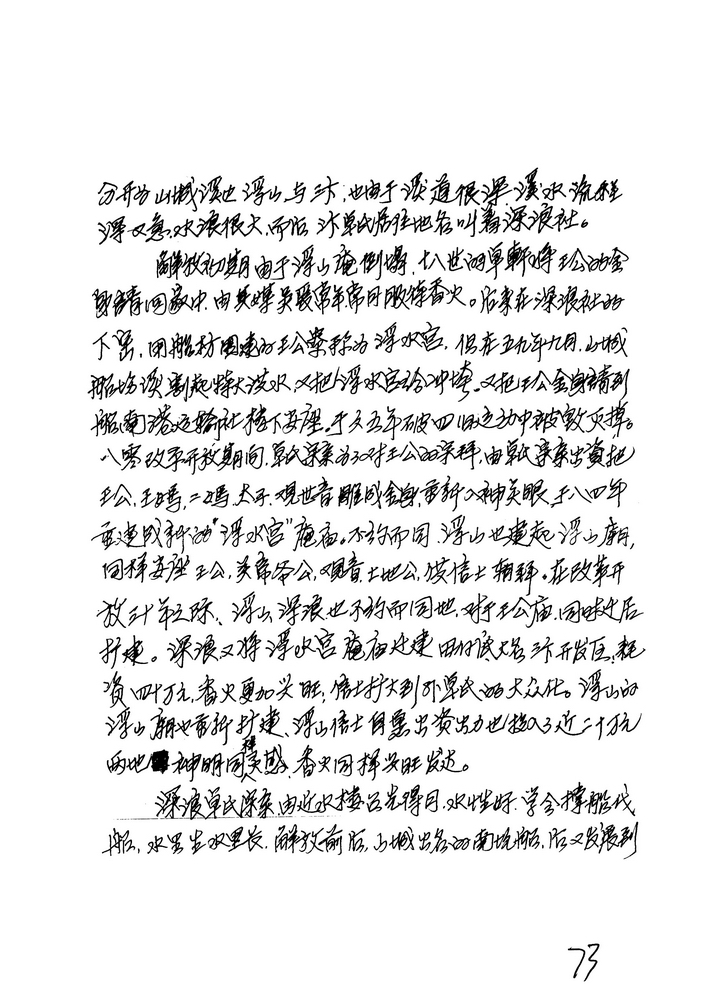 分开为山城溪边浮山与三汴,也由于溪道很深,溪水流程
深又急,水浪很大,而后,汴单氏居住地名叫着深浪社。
解放初期由于浮山庵倒塌,十八世的单轩将王公的金
身请回家中,由其媒吴暖常年常月服侍香火。后来在深浪社的
下密,用船材围建的王公岽称为浮水宫,但在五九年九月,山城
船场溪割起特大洪水,又把浮水宫给冲垮,又把王公金身请到
船南港运输社楼下安座。于六五年破四旧运动中被毁灭掉。
八零改革开放期间,单氏宗亲为了对王公的崇拜,由单氏宗亲出资把
王公,王妈,二妈,太子,观世音雕成金身,重新入神英眼,于八四年
重建成新的"浮水宫"庵庙。不约而同,浮山也建起浮山庙,
同样安座王公,关帝爷公,观音土地公,使信士朝拜。在改革开
放三十年之际、浮山深浪也不约而同地,对于王公庙,同时进居
扩建。深浪又将浮水宫庵庙迁建田仔底大名三汴开发区,耗
资四十万元,香火更加兴旺,信士扩大到外单氏的大众化。浮山的
浮山庙也重新扩建、浮山信士自愿出资出力也投入了近二十万元
两地神明同样灵感,香火同样兴旺发达。
深浪单氏宗亲,由近水楼台先得月,水性好,学会撑船代
船,水里生水里长,解放前后,山城出名的南坑船,后又发展到
73